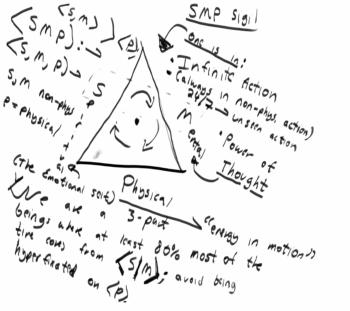 <S, M>
<S M P> :→
<P>
<S, M, P> →
S, M non-phys.
P = Physical
SMP Sigil
one is in:
• Infinite Action
(always in non-phys. action)
24/7 → unseen action
• Power of
Thought
Spiritual
Mental
(The Emotional self)
Physical
3-part
"energy in motion"
We are a
beings where at least 80% most of the
time comes from <S/M>; avoid being
hyperfixated on <P>.